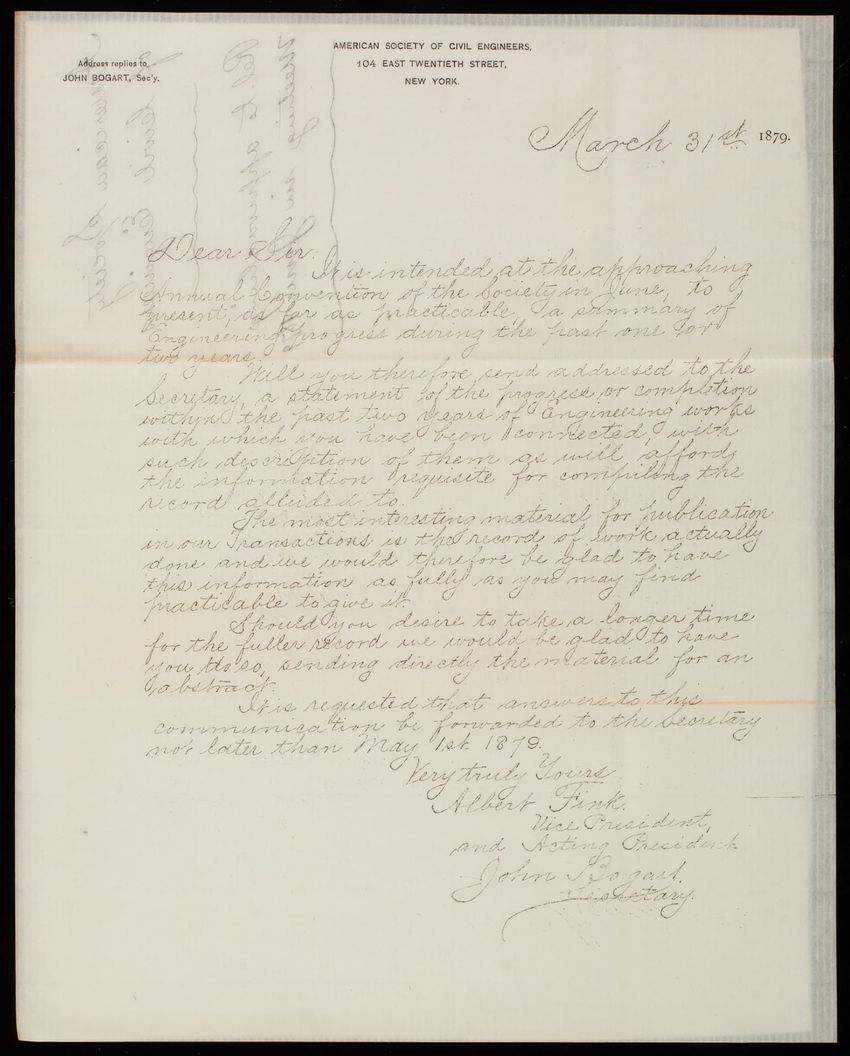 AMERICAN SOCIETY OF CIVIL ENGINEERS,
104 EAST TWENTIETH STREET,
NEW YORK.
Address replies to
JOHN BOGART, Sec'y.
March 31st 1879.
Dear Sir:
It is intended at the approaching
Annual Convention of the Society in June, to
present, as far as practicable, a summary of
Engineering progress during the past one or
two years.
Will you therefore send addressed to the
Secretary, a statement of the progress or completion
within the past two years of Engineering works
with which you have been connected, with
such description of them as will afford
the information requisite for compiling the
record alluded to.
The most interesting material for publication
in our Transactions is the record of work actually
done and we would therefore be glad to have
this information as fully as you may find
practicable to give it.
Should you desire to take a longer time
for the fuller record we would be glad to have
you do so, sending directly the material for an
abstract.
It is requested that answers to this
communication be forwarded to the Secretary
not later than May 1st. 1879.
Very truly Yours
Albert Fink.
Vice President,
and Acting President.
John Bogart.
Secretary.